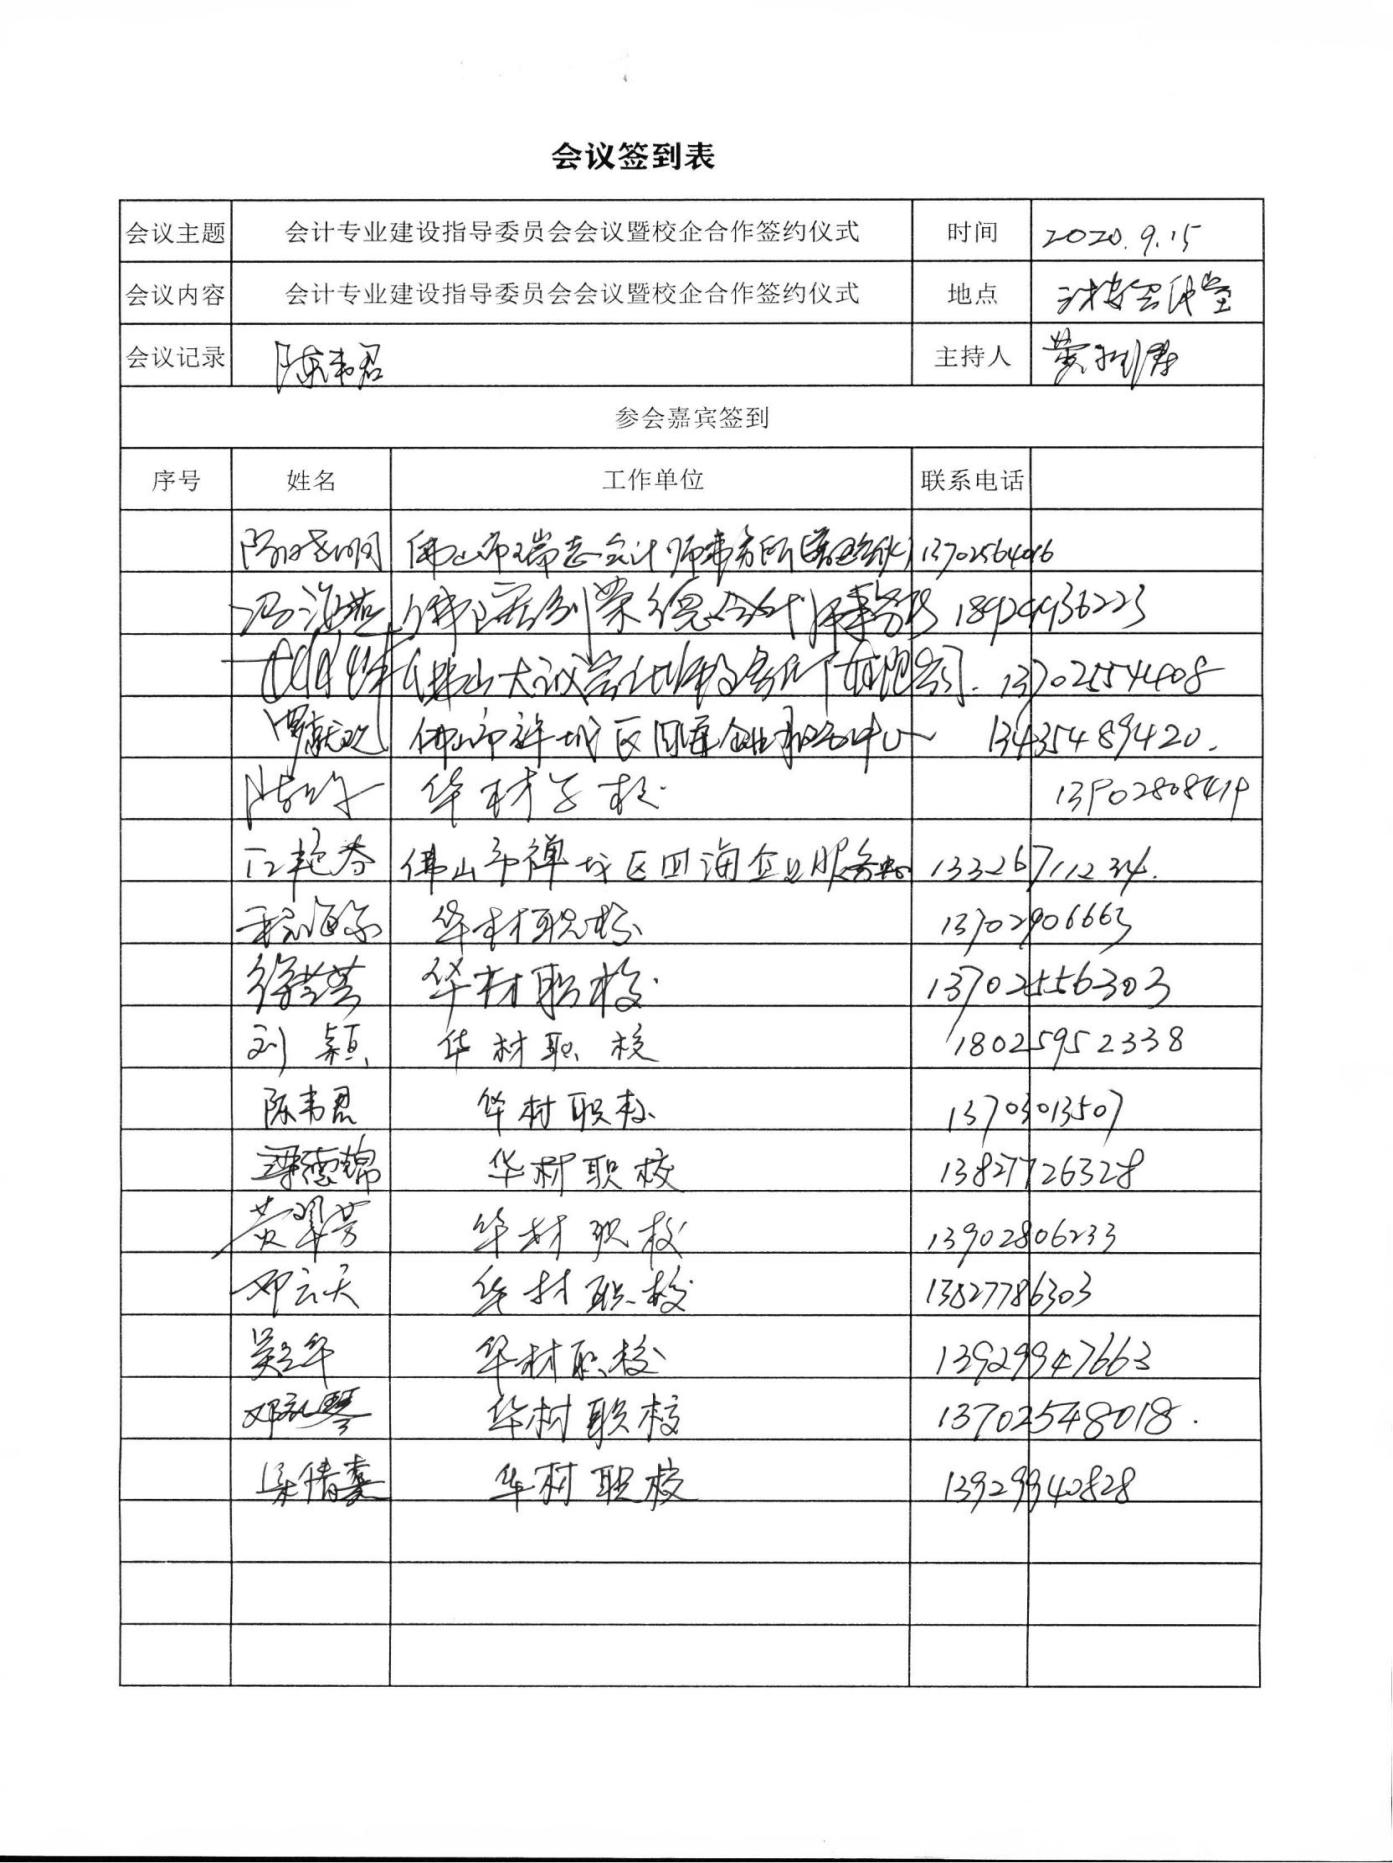 会议签到表
会议主题 会计专业建设指导委员会会议暨校企合作签约仪式 时间 2020.9.15
会议内容 会计专业建设指导委员会会议暨校企合作签约仪式 地点
会议记录 陈韦君 主持人 黄
参会嘉宾签到
序号 姓名 工作单位 联系电话
佛山市瑞志会计师事务所 13702564016
冯海燕 会计师事务所 18924936223
佛山大诚会计师事务所有限公司. 13702554408
佛山市禅城区四海企业服务中心 13435489420.
陈 华材学校 13902808419
江艳芬 佛山市禅城区四海企业服务中心 13326711234.
华材职校 13702906663
徐 华材职校 13702556303
刘颖 华材职校 18025952338
陈韦君 华材职校 13703013507
梁德锦 华材职校 13827726328
黄翠芳 华材职校 13902806233
邓云天 华材职校 13827786303
吴 华 华材职校 13929947663
邓 琴 华材职校 13702548018.
梁倩 华材职校 13929940828